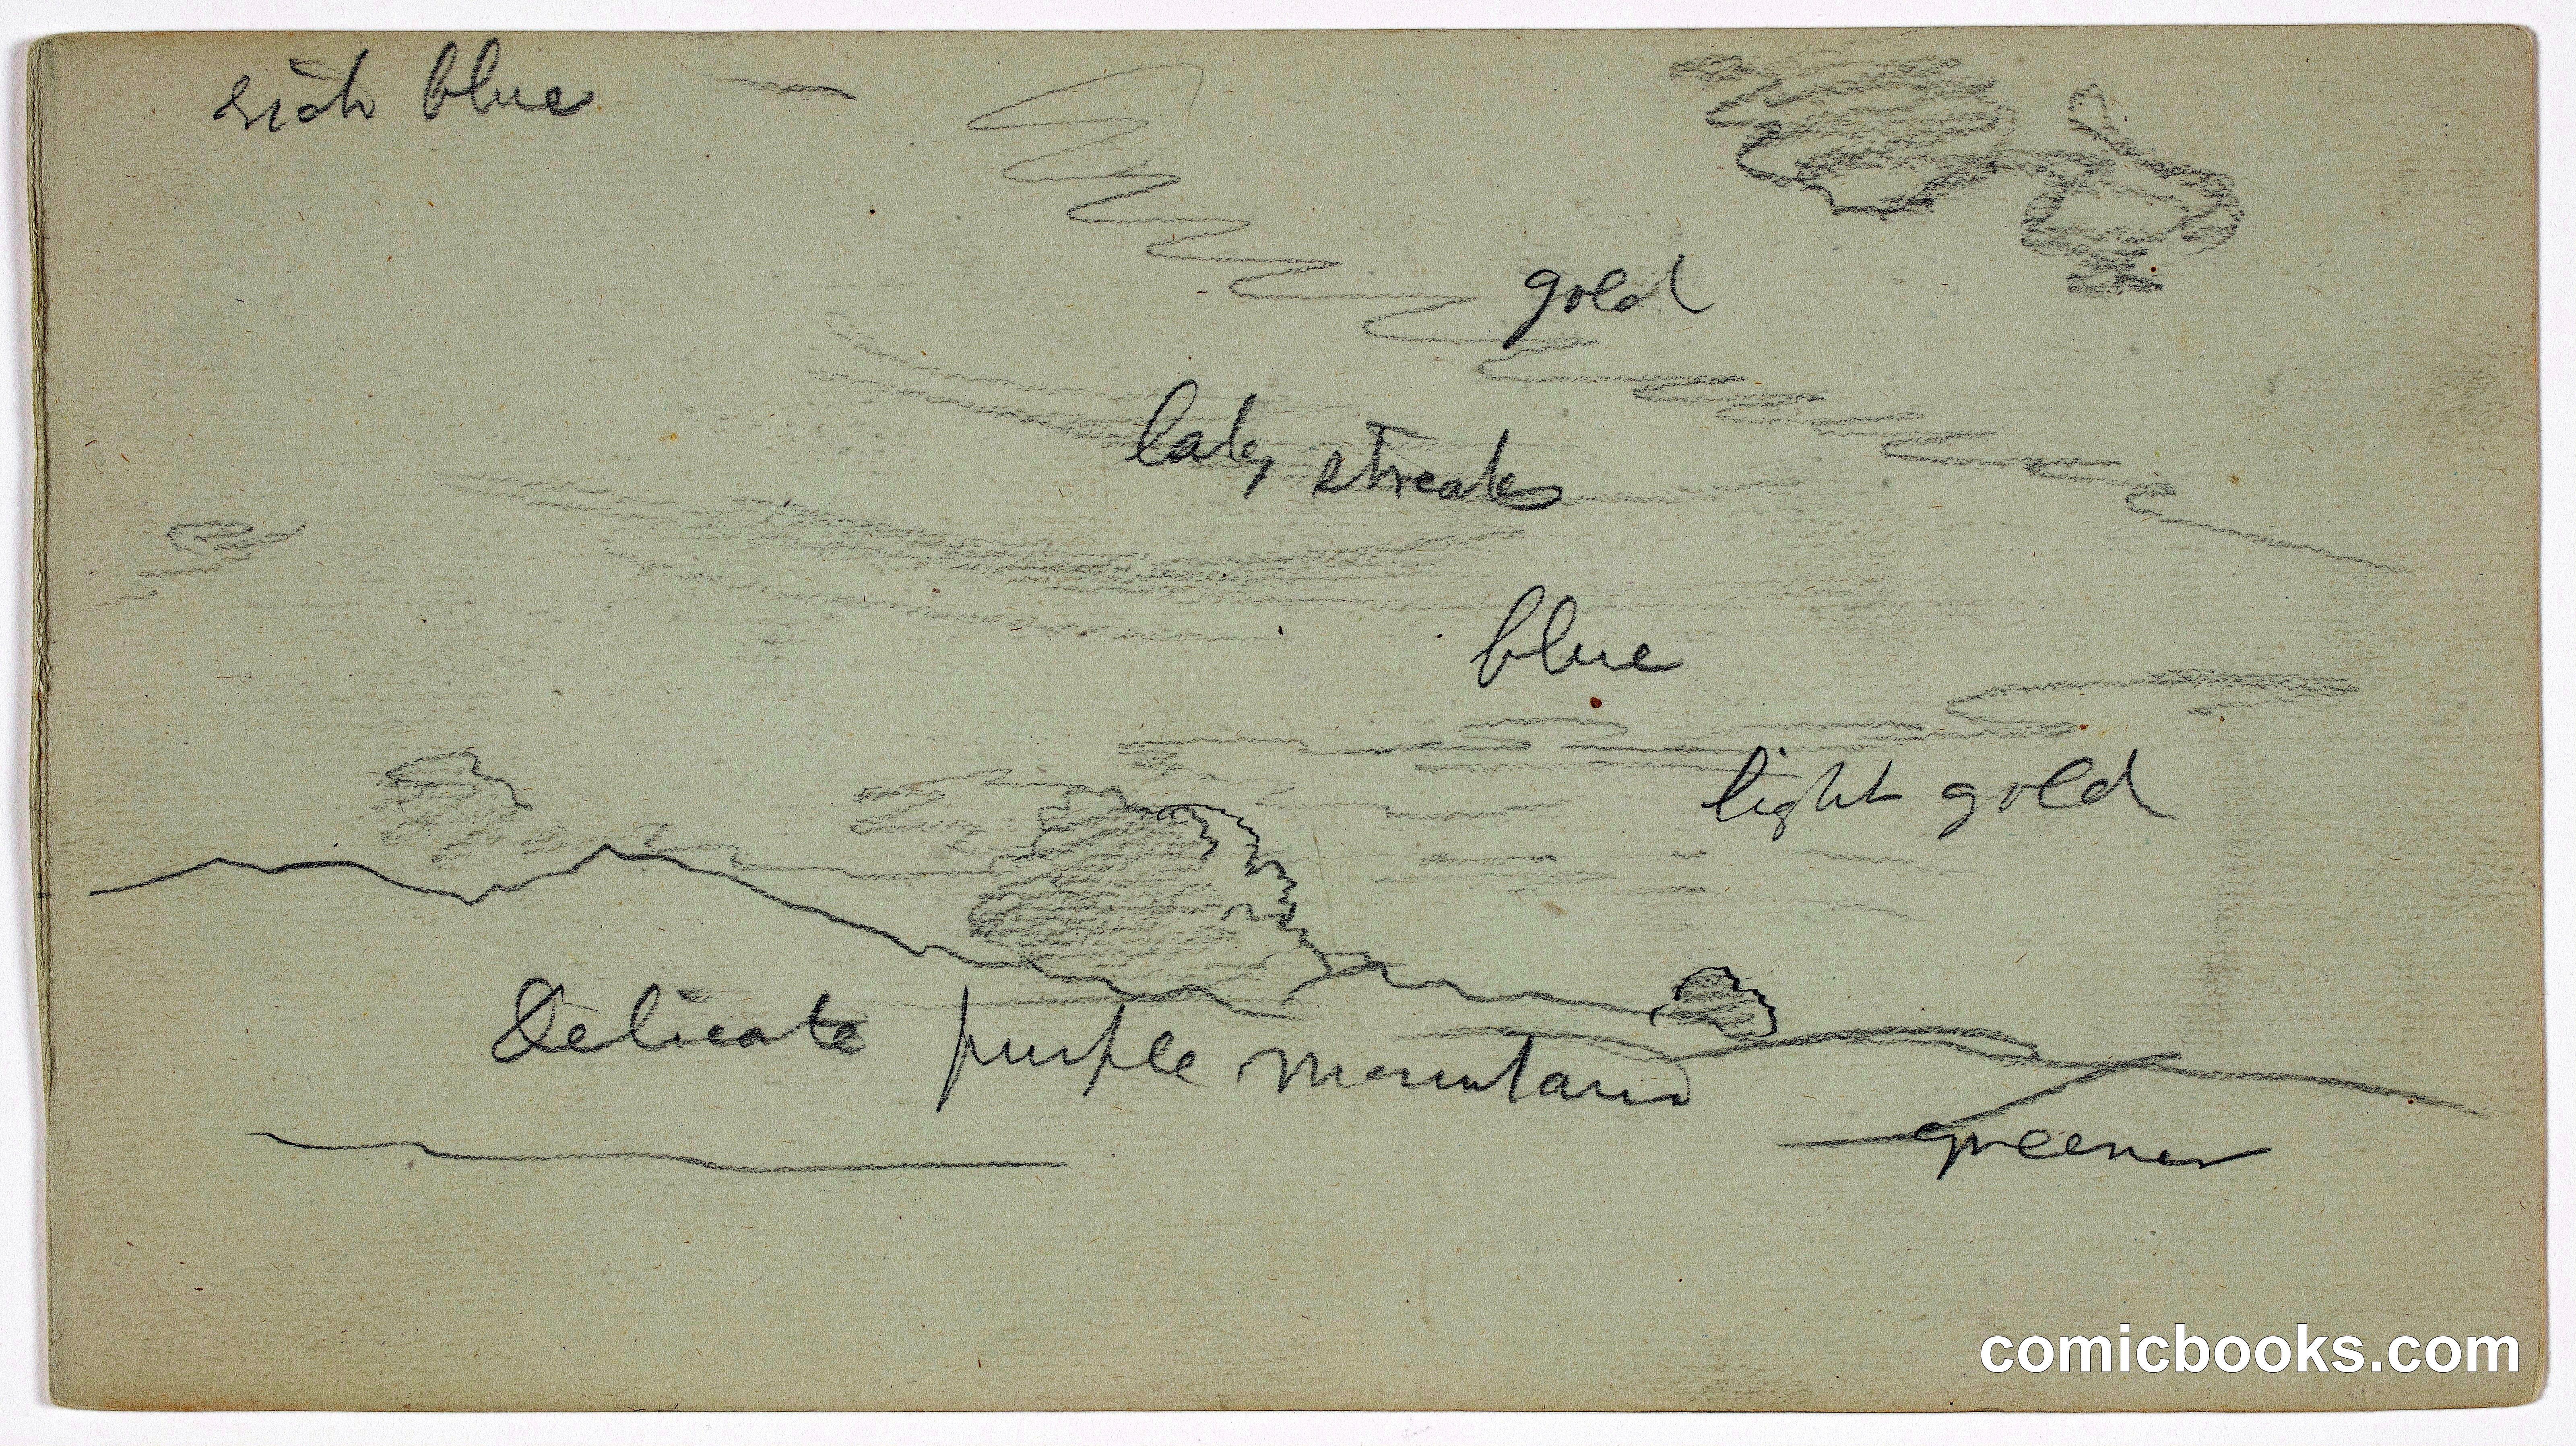 rich blue
gold
streaks
blue
light gold
Delicate purple mountains
greener
comicbooks.com